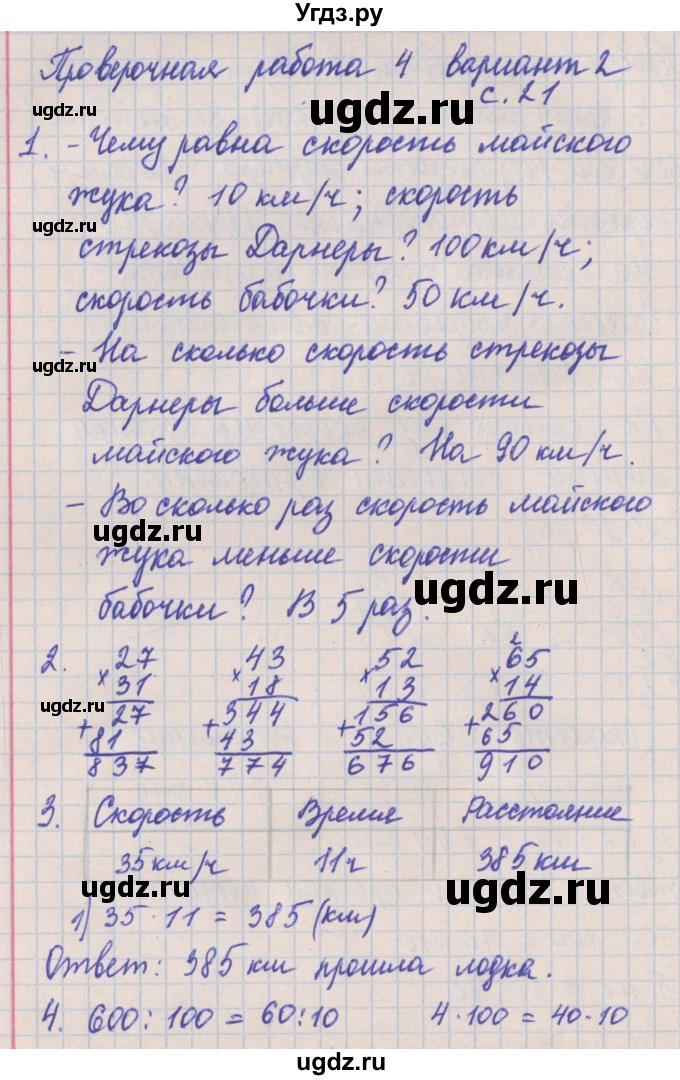 Угдз.ру
Проверочная работа 4 вариант 2
ugdz.ru с. 21
ugdz.ru
1. - Чему равна скорость майского
жука? 10 км/ч; скорость
ugdz.ru
стрекозы Дарнеры? 100 км/ч;
ugdz.ru
скорость бабочки? 50 км/ч.
- На сколько скорость стрекозы
ugdz.ru
Дарнеры больше скорости
майского жука? На 90 км/ч.
ugdz.ru
- Во сколько раз скорость майского
ugdz.ru
жука меньше скорости
ugdz.ru
бабочки? В 5 раз.
2. 27 43 52 2 65
× 31 × 18 × 13 × 14
ugdz.ru
+ 27 + 344 + 156 + 260
81 43 52 65
837 774 676 910
3. Скорость Время Расстояние
35 км/ч 11 ч 385 км
ugdz.ru
1) 35 · 11 = 385 (км)
ugdz.ru
Ответ: 385 км прошла лодка.
4. 600 : 100 = 60 : 10 4 · 100 = 40 · 10
ugdz.ru